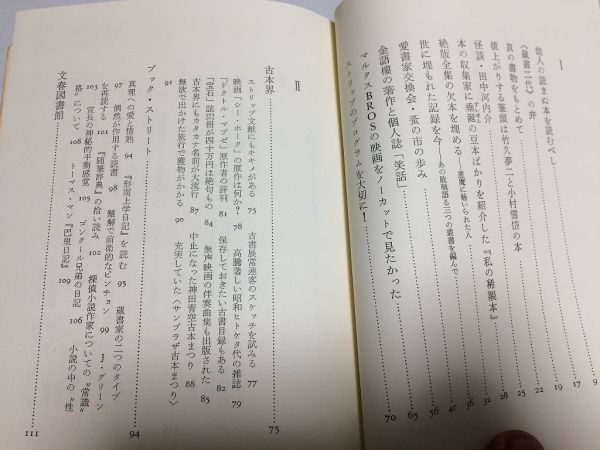 I
他人の読まぬ本を読むべし 9
《蔵書二代》の弁 17
真の書物をもとめて 19
値上がりする筆頭は竹久夢二と小村雪岱の本 22
怪談・田中河内介 25
本の収集家に垂涎の豆本ばかりを紹介した『私の稀覯本』 28
絶版全集の欠本を埋める——悪魔に魅いられた人 32
世に埋もれた記録を今！——あの敗戦語る三つの叢書を編んで 36
愛書家交換会・蚤の市の歩み 40
金語楼の著作と個人誌「笑話」 56
マルクスBROSの映画をノーカットで見たかった 65
ストリップのプログラムを大切に！ 70
II
古本界 75
ストリップ文献にもセキがある 75　古書展常連客のスケッチを試みる 77
映画「シー・ホーク」の原作は何か？ 78　高騰著しい昭和ヒトケタ代の雑誌 79
『ドクトル・マブゼ』原作者の評判 81　保存しておきたい古書目録もある 82
『宝石』誌冊が四十万円は絶句もの 84　無声映画の伴奏曲集も出版された 85
古本界にもカタカナ名前が大流行 87　中止になった神田青空古本まつり 88
無欲で出かけた旅行で獲物がかかる 90　充実していた〈サンプラザ古本まつり〉
91
ブック・ストリート 94
真理への愛と情熱 94　『形而上学日記』を読む 95　蔵書家の二つのタイプ
97　偶然が作用する読書 98　難解で前衛的なピンチョン 99　J・グリーン
を再読する 101　『随筆辞典』の拾い読み 102　探偵小説作家についての〝常識〟
103　宣長の神秘的平衡感覚 105　ゴンクール兄弟の日記 106　小説の中の〝性
格〟について 108　トーマス・マン『巴里日記』 109
文春図書館 111